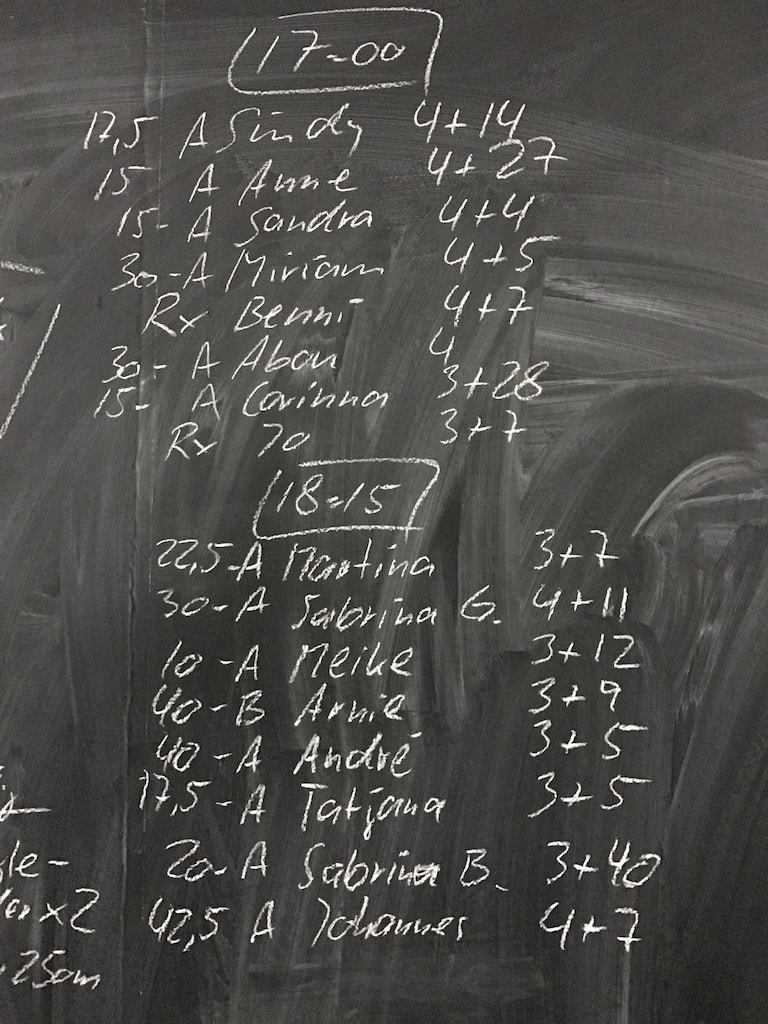 17-00
17,5 A Sindy 4+14
15 A Anne 4+27
15- A Sandra 4+4
30-A Miriam 4+5
Rx Benni 4+7
30- A Aban 4
15- A Corinna 3+28
Rx Jo 3+7
18-15
22,5-A Martina 3+7
30-A Sabrina G. 4+11
10-A Meike 3+12
40-B Arnie 3+9
40-A André 3+5
17,5-A Tatjana 3+5
20-A Sabrina B. 3+40
x2 42,5 A Johannes 4+7
25cm